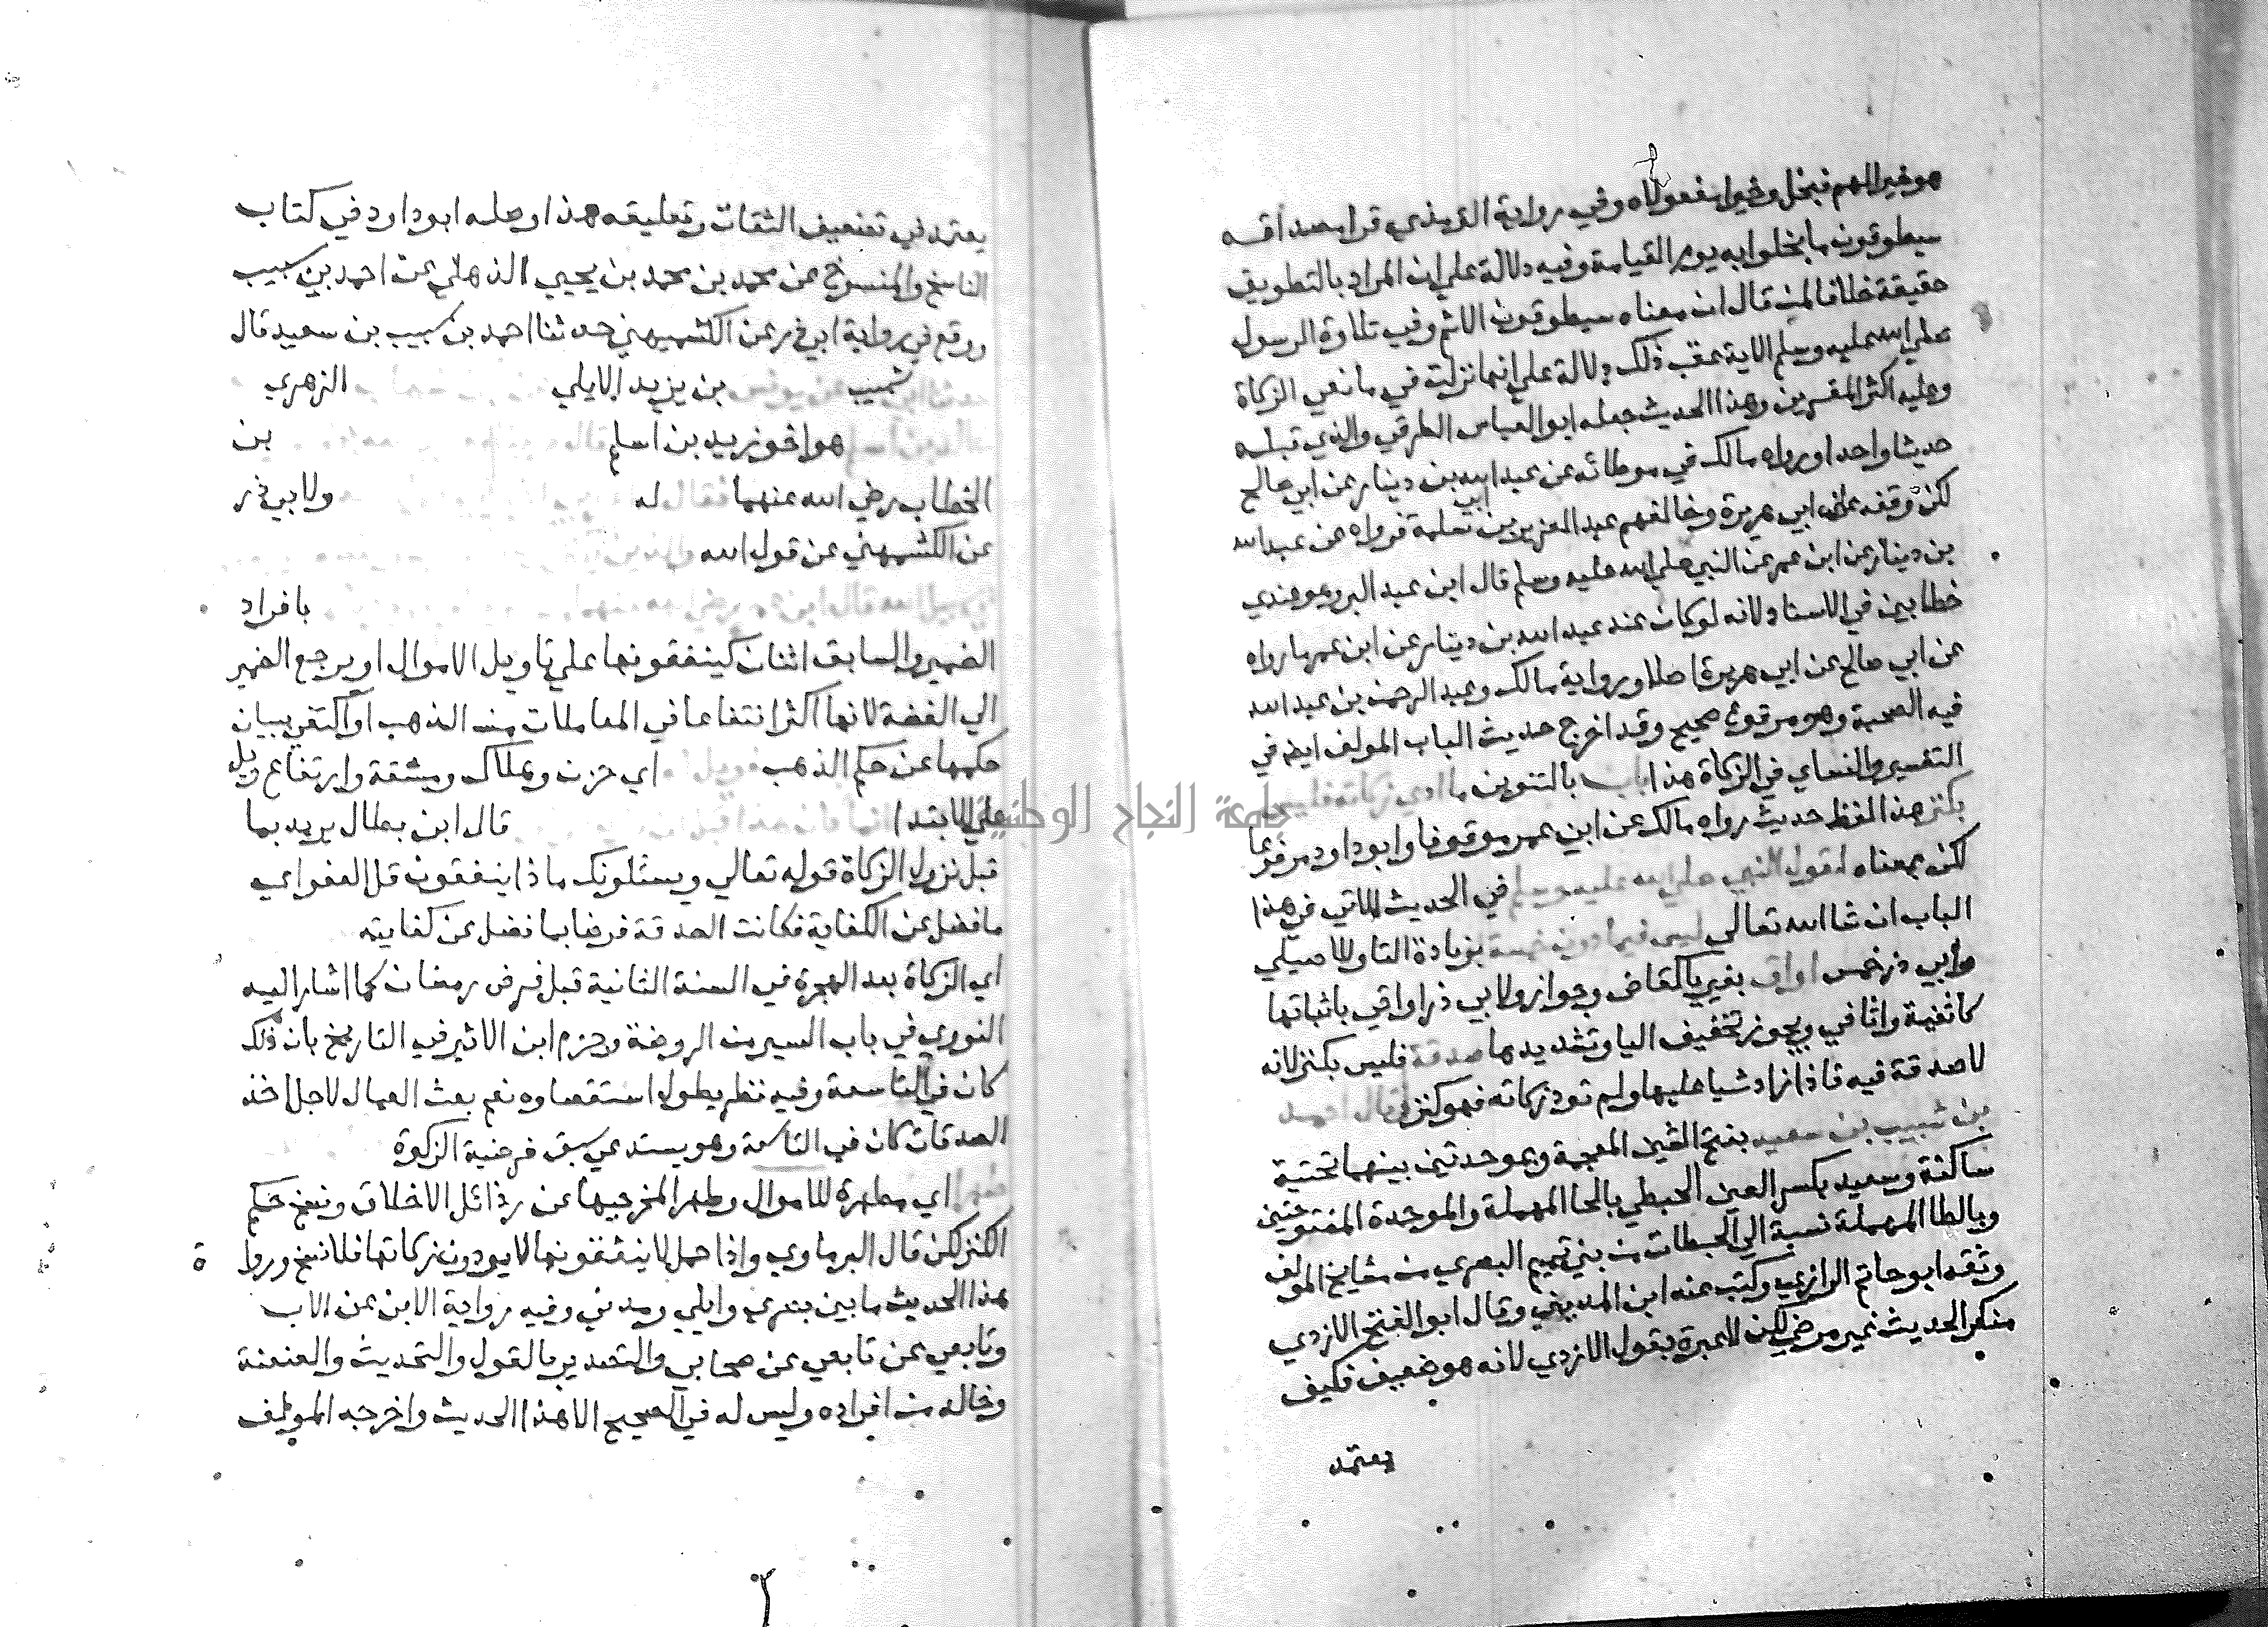 هو خيرا لهم فبخل وخيرا مفعولاه وفي رواية الترمذي قرا مصداقه
سيطوقون ما بخلوا به يوم القيامة وفيه دلالة علي ان المراد بالتطويق
حقيقة خلافا لمن قال ان معناه سيطوقون الاثم وفي تلاوة الرسول
صلي الله عليه وسلم الاية عقب ذلك دلالة علي انها نزلت في مانعي الزكاة
وعليه اكثر المفسرين وهذا الحديث جعله ابو العباس الطرقي والذي قبله
حديثا واحدا ورواه مالك في موطائه عن عبد الله بن دينار عن ابي صالح
لكن وقفه علي ابي هريرة وخالفهم عبد العزيز بن ابي سلمة فرواه عن عبد الله
بن دينار عن ابن عمر عن النبي صلي الله عليه وسلم قال ابن عبد البر وهو عندي
خطا بين في الاسناد لانه لو كان عند عبد الله بن دينار عن ابن عمر ما رواه
عن ابي صالح عن ابي هريرة اصلا ورواية مالك وعبد الرحمن بن عبد الله
فيه الصحبة وهو مرفوع صحيح وقد اخرج حديث الباب المولف ايضا في
التفسير والنساي في الزكاة هذا باب بالتنوين ما ادي زكاته فليس
بكنز هذا لفظ حديث رواه مالك عن ابن عمر موقوفا وابو داود مرفوعا
لكن بمعناه لقول النبي صلي الله عليه وسلم في الحديث الاتي في هذا
الباب ان شا الله تعالي ليس فيما دون خمسة بزيادة التا وللاصيلي
وابي ذر خمس اواق بغير يا كقاض وجواز ولابي ذر اواقي باثباتها
كاثفية واثافي ويجوز تخفيف اليا وتشديدها صدقة فليس بكنز لانه
لا صدقة فيه فاذا زاد شيا عليها ولم تود زكاته فهو كنز وقال احمد
بن شبيب بن سعيد بفتح الشين المعجمة وبموحدتين بينهما تحتية
ساكنة وسعيد بكسر العين الحبطي بالحا المهملة والموحدة المفتوحتين
وبالطا المهملة نسبة الي الحبطات من بني تميم البصري من مشايخ المولف
وثقه ابو حاتم الرازي وكتب عنه ابن المديني وقال ابو الفتح الازدي
منكر الحديث غير مرضي لكن لا عبرة بقول الازدي لانه هو ضعيف فكيف
يعتمد
يعتمد في تضعيف الثقات وتعليقه هذا وصله ابو داود في كتاب
الناسخ والمنسوخ عن محمد بن محمد بن يحيي الذهلي عن احمد بن شبيب
ووقع في رواية ابي ذر عن الكشميهني حدثنا احمد بن شبيب بن سعيد قال
شبيب بن يزيد الايلي الزهري
هو اخو زيد بن اسلم بن
الخطاب رضي الله عنهما له ولابي ذر
عن الكشميهني عن قول الله
بافراد
الضمير والسابق اثنان كينفقونها علي تاويل الاموال او يرجع الضمير
الي الفضة لانها اكثر انتفاعا في المعاملات من الذهب او اكتفي ببيان
حكمها عن حكم الذهب اي حزن وهلاك ومشقة وارتفاع ويل
علي الابتدا قال ابن بطال يريد بما
قبل نزول الزكاة قوله تعالي ويسئلونك ماذا ينفقون قل العفو اي
ما فضل عن الكفاية فكانت الصدقة فرضا بما فضل عن كفايته
اي الزكاة بعد الهجرة في السنة الثانية قبل فرض رمضان كما اشار اليه
النووي في باب السير من الروضة وجزم ابن الاثير في التاريخ بان ذلك
كان في التاسعة وفيه نظر يطول استقصاوه نعم بعث العمال لاجل اخذ
الصدقات كان في التاسعة وهو يستدعي سبق فرضية الزكوة
اي مطهرة للاموال وطهرا لمخرجيها عن رذائل الاخلاق ونسخ حكم
الكنز لكن قال البرماوي واذا حمل لا ينفقونها لا يودون زكاتها فلا نسخ وروا
ة
هذا الحديث ما بين بصري وايلي ومدني وفيه رواية الابن عن الاب
وتابعي عن تابعي عن صحابي والتصدير بالقول والتحديث والعنعنة
وخالد من افراده وليس له في الصحيح الا هذا الحديث واخرجه المولف
جامعة النجاح الوطنية